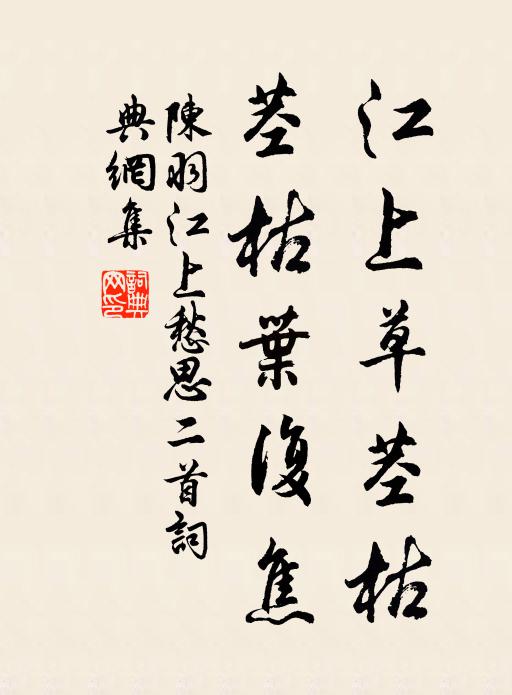 江上草莖枯
莖枯葉復焦
陳羽江上愁思二首詞
典網集
詞典網印